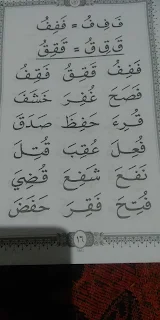 فَ فِ فُ = فَفِفُ
قَ قِ قُ = قَقِقُ
فَفِفُ قَقِقُ فَقِفُ
فَصَحَ غُفِرَ خَشَفَ
قُرِءَ حَفِظَ صَدَقَ
فُعِلَ عُقِبَ قُتِلَ
نَفَعَ شَفِعَ قُضِيَ
فُتِحَ فَقِرَ خَفَضَ
١٦